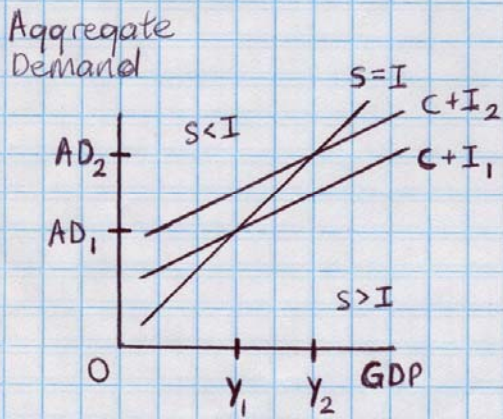 Aggregate
Demand
S=I
C+I₂
S<I
AD₂
C+I₁
AD₁
S>I
O
Y₁
Y₂
GDP